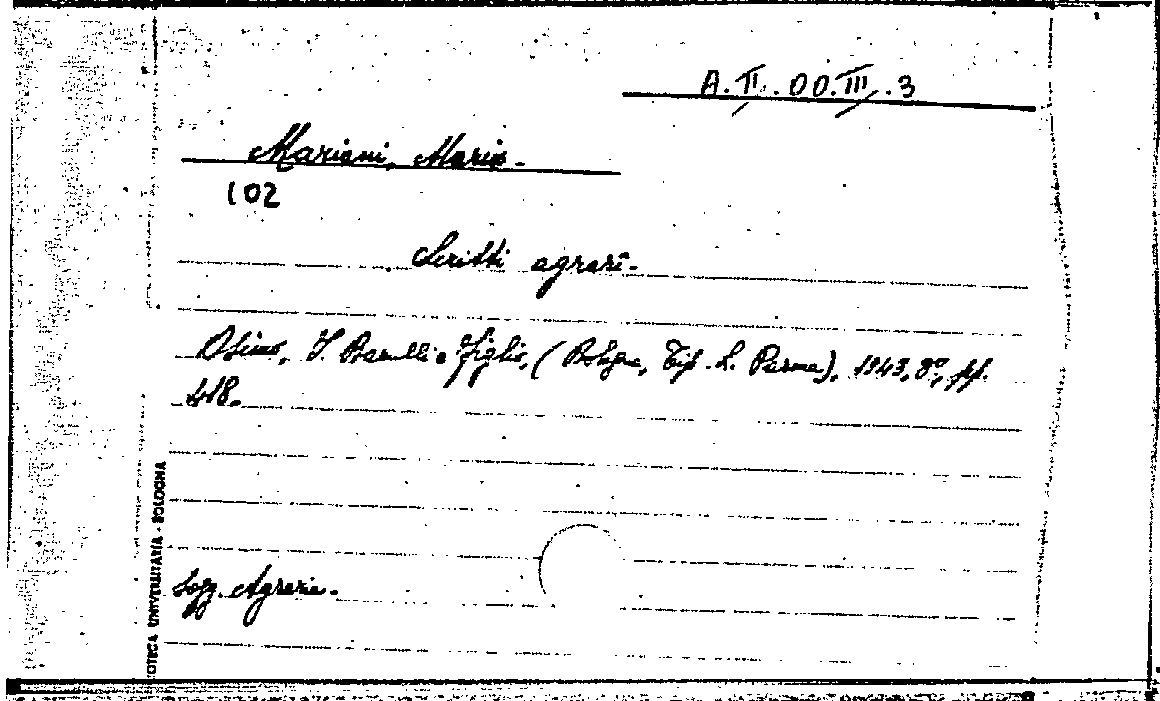 A.II.OO.III.3
Mariani, Mario.
102
Scritti agrarî.
Osimo, I. Barulli e Figlio, (Bologna, Tip. L. Parma), 1943, 8°, pp.
418.
Sogg. Agraria.
OTECA UNIVERSITARIA - BOLOGNA